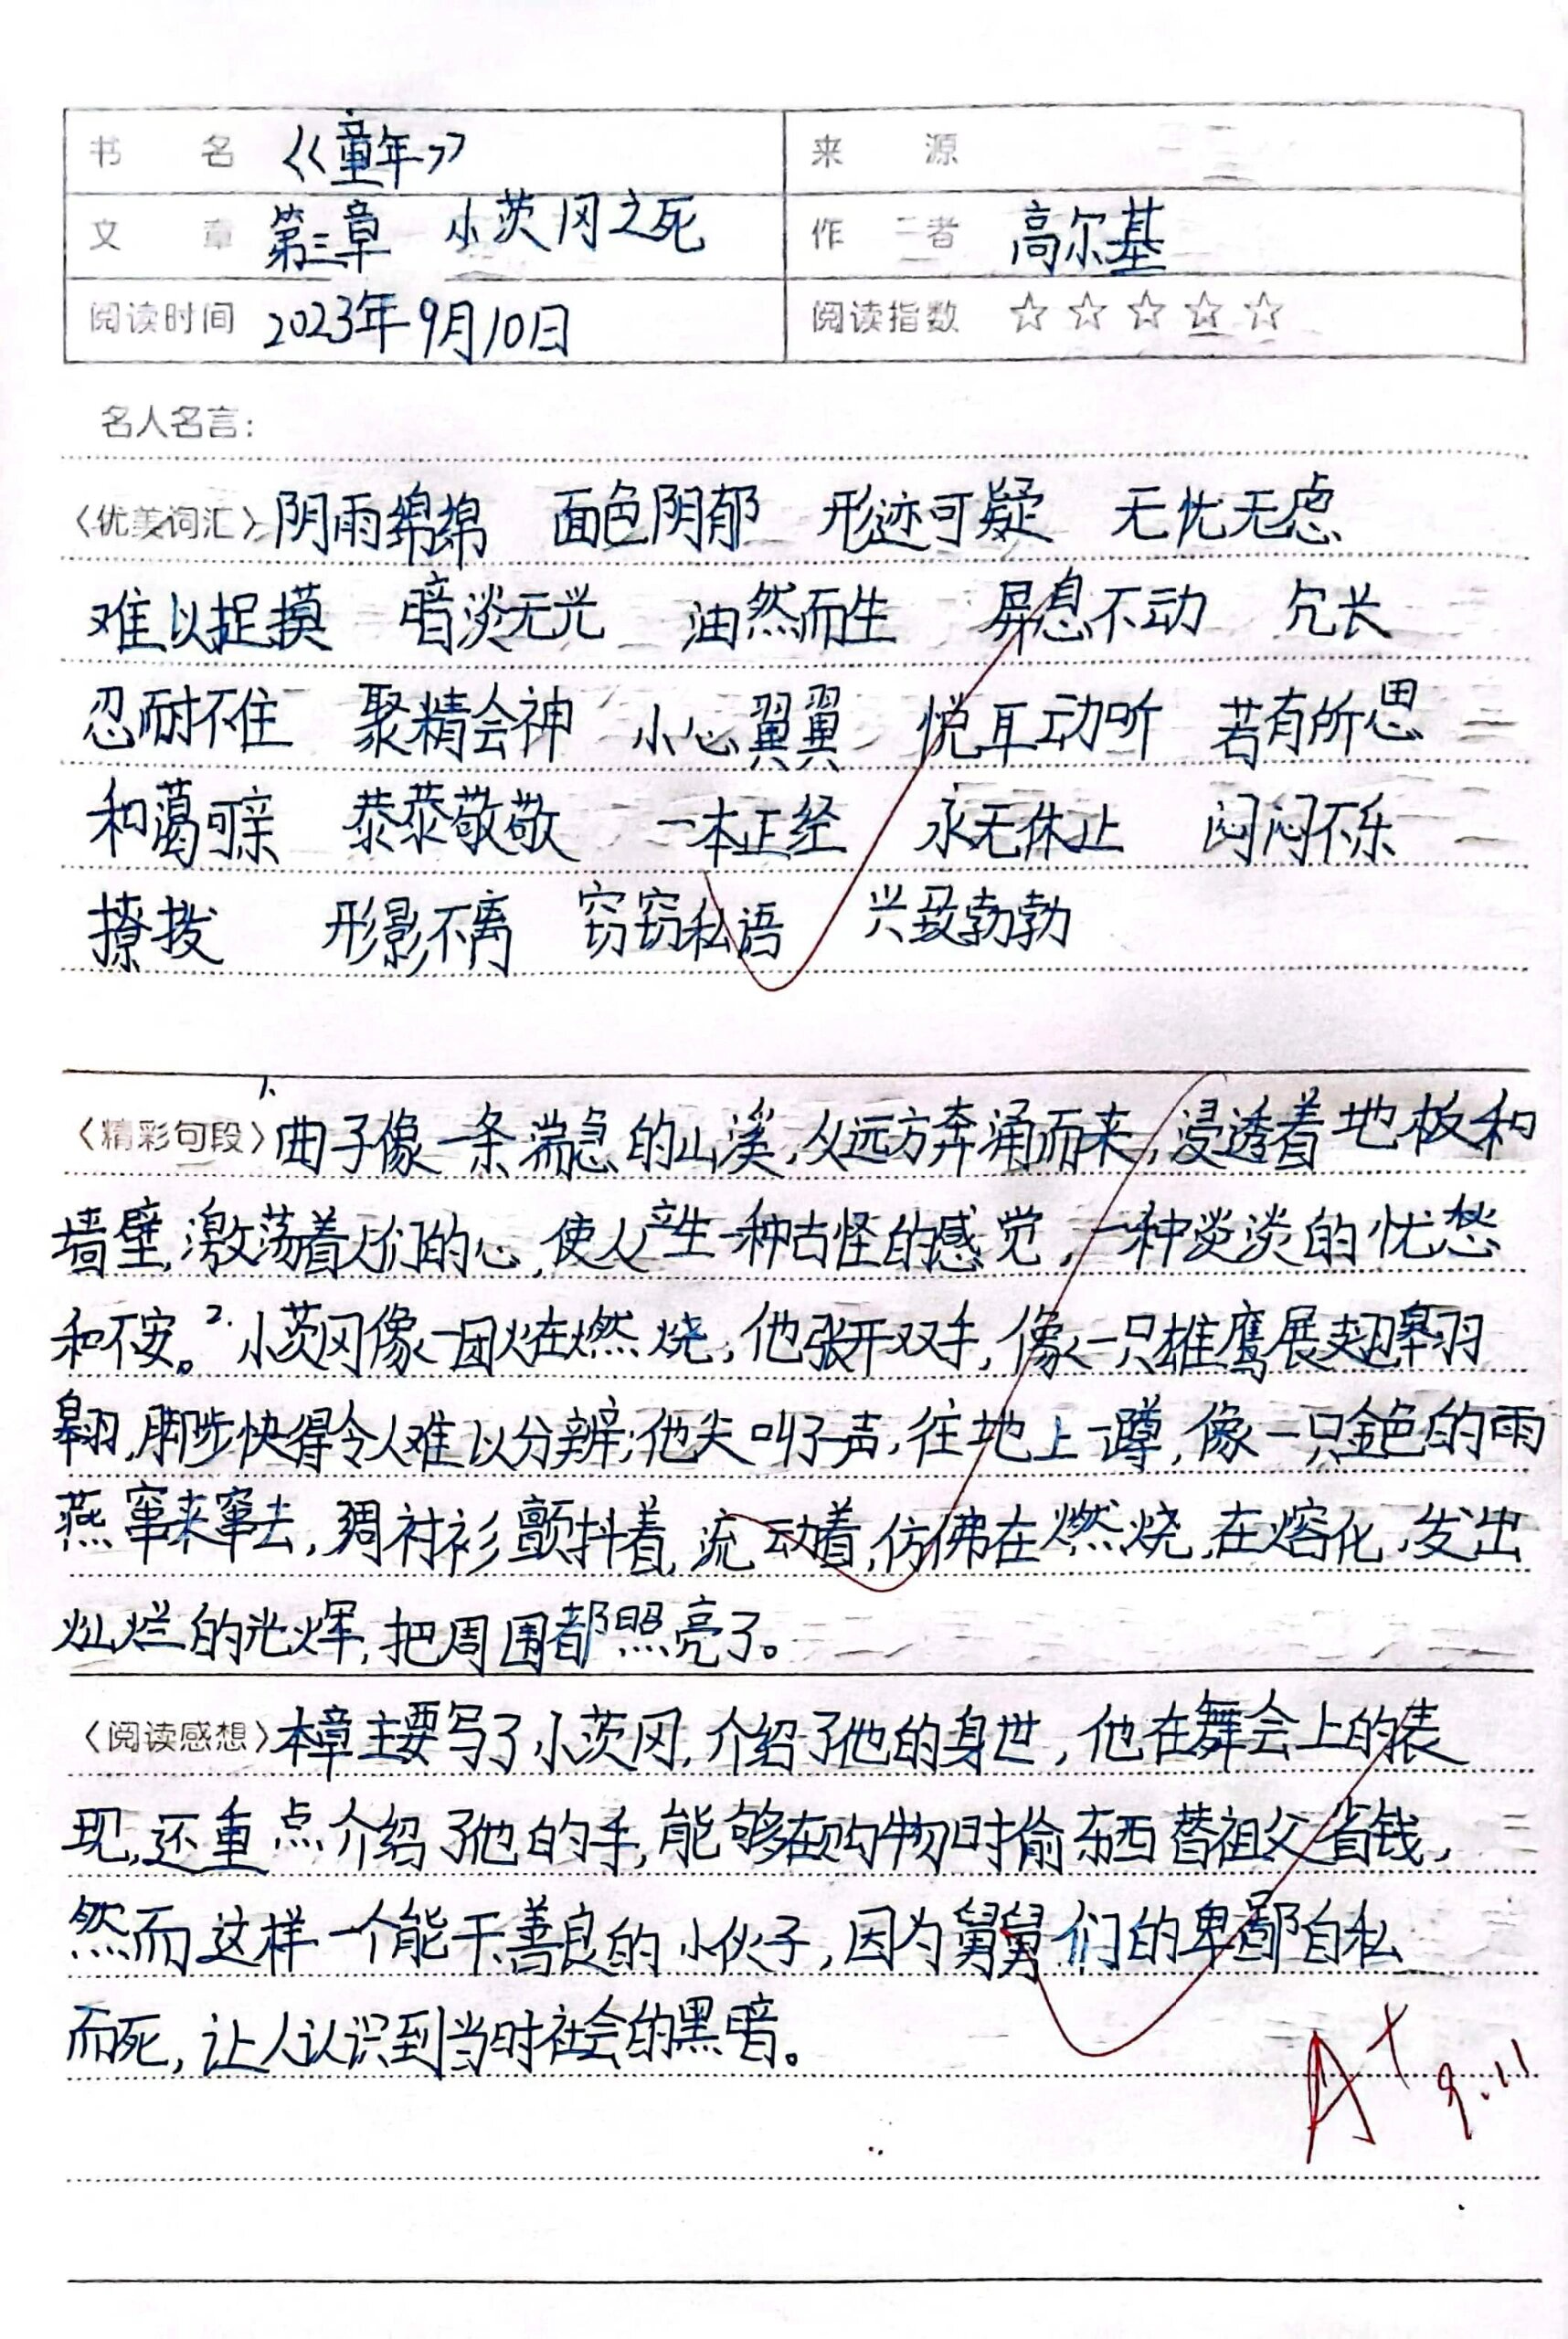 书 名 《童年》 来 源
文 章 第三章 小茨冈之死 作 者 高尔基
阅读时间 2023年9月10日 阅读指数 ☆☆☆☆☆
名人名言:
〈优美词汇〉阴雨绵绵 面色阴郁 形迹可疑 无忧无虑
难以捉摸 暗淡无光 油然而生 屏息不动 冗长
忍耐不住 聚精会神 小心翼翼 悦耳动听 若有所思
和蔼可亲 恭恭敬敬 一本正经 永无休止 闷闷不乐
撩拨 形影不离 窃窃私语 兴致勃勃
1.
〈精彩句段〉曲子像一条湍急的山溪,从远方奔涌而来,浸透着地板和
墙壁,激荡着人们的心,使人产生一种古怪的感觉,一种淡淡的忧愁
和不安。2.小茨冈像一团火在燃烧,他张开双手,像一只雄鹰展翅翱翔
翱翔,脚步快得令人难以分辨;他尖叫了声,往地上一蹲,像一只金色的雨
燕窜来窜去,绸衬衫颤抖着,流动着,仿佛在燃烧,在熔化,发出
灿烂的光辉,把周围都照亮了。
〈阅读感想〉本章主要写了小茨冈,介绍了他的身世,他在舞会上的表
现,还重点介绍了他的手,能够在购物时偷东西替祖父省钱,
然而这样一个能干善良的小伙子,因为舅舅们的卑鄙自私
而死,让人认识到当时社会的黑暗。
A+ 9.11